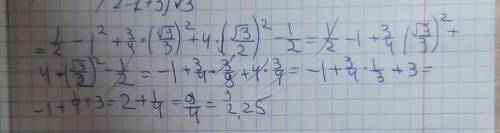 2 - 1 + 3) √3
= 1/2 - 1² + 3/4 · (√3/3)² + 4 · (√3/2)² - 1/2 = 1/2 - 1 + 3/4 (√3/3)² +
4 · (√3/2)² - 1/2 = -1 + 3/4 · 3/9 + 4 · 3/4 = -1 + 3/4 · 1/3 + 3 =
-1 + 1/4 + 3 = 2 + 1/4 = 9/4 = 2,25